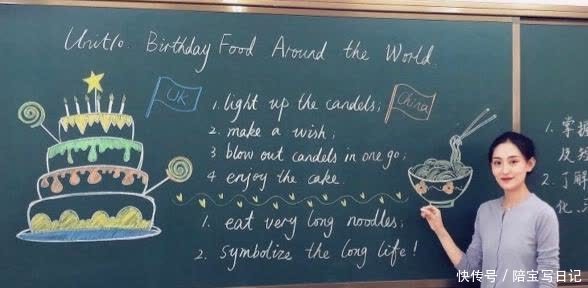 Unit10. Birthday Food Around the World.
UK
1. light up the candels;
2. make a wish;
3 blow out candels in one go;
4 enjoy the cake.
China
1. eat very long noodles;
2. symbolize the long life!
1. 掌握
2. 了解
化,
快传号 / 陪宝写日记